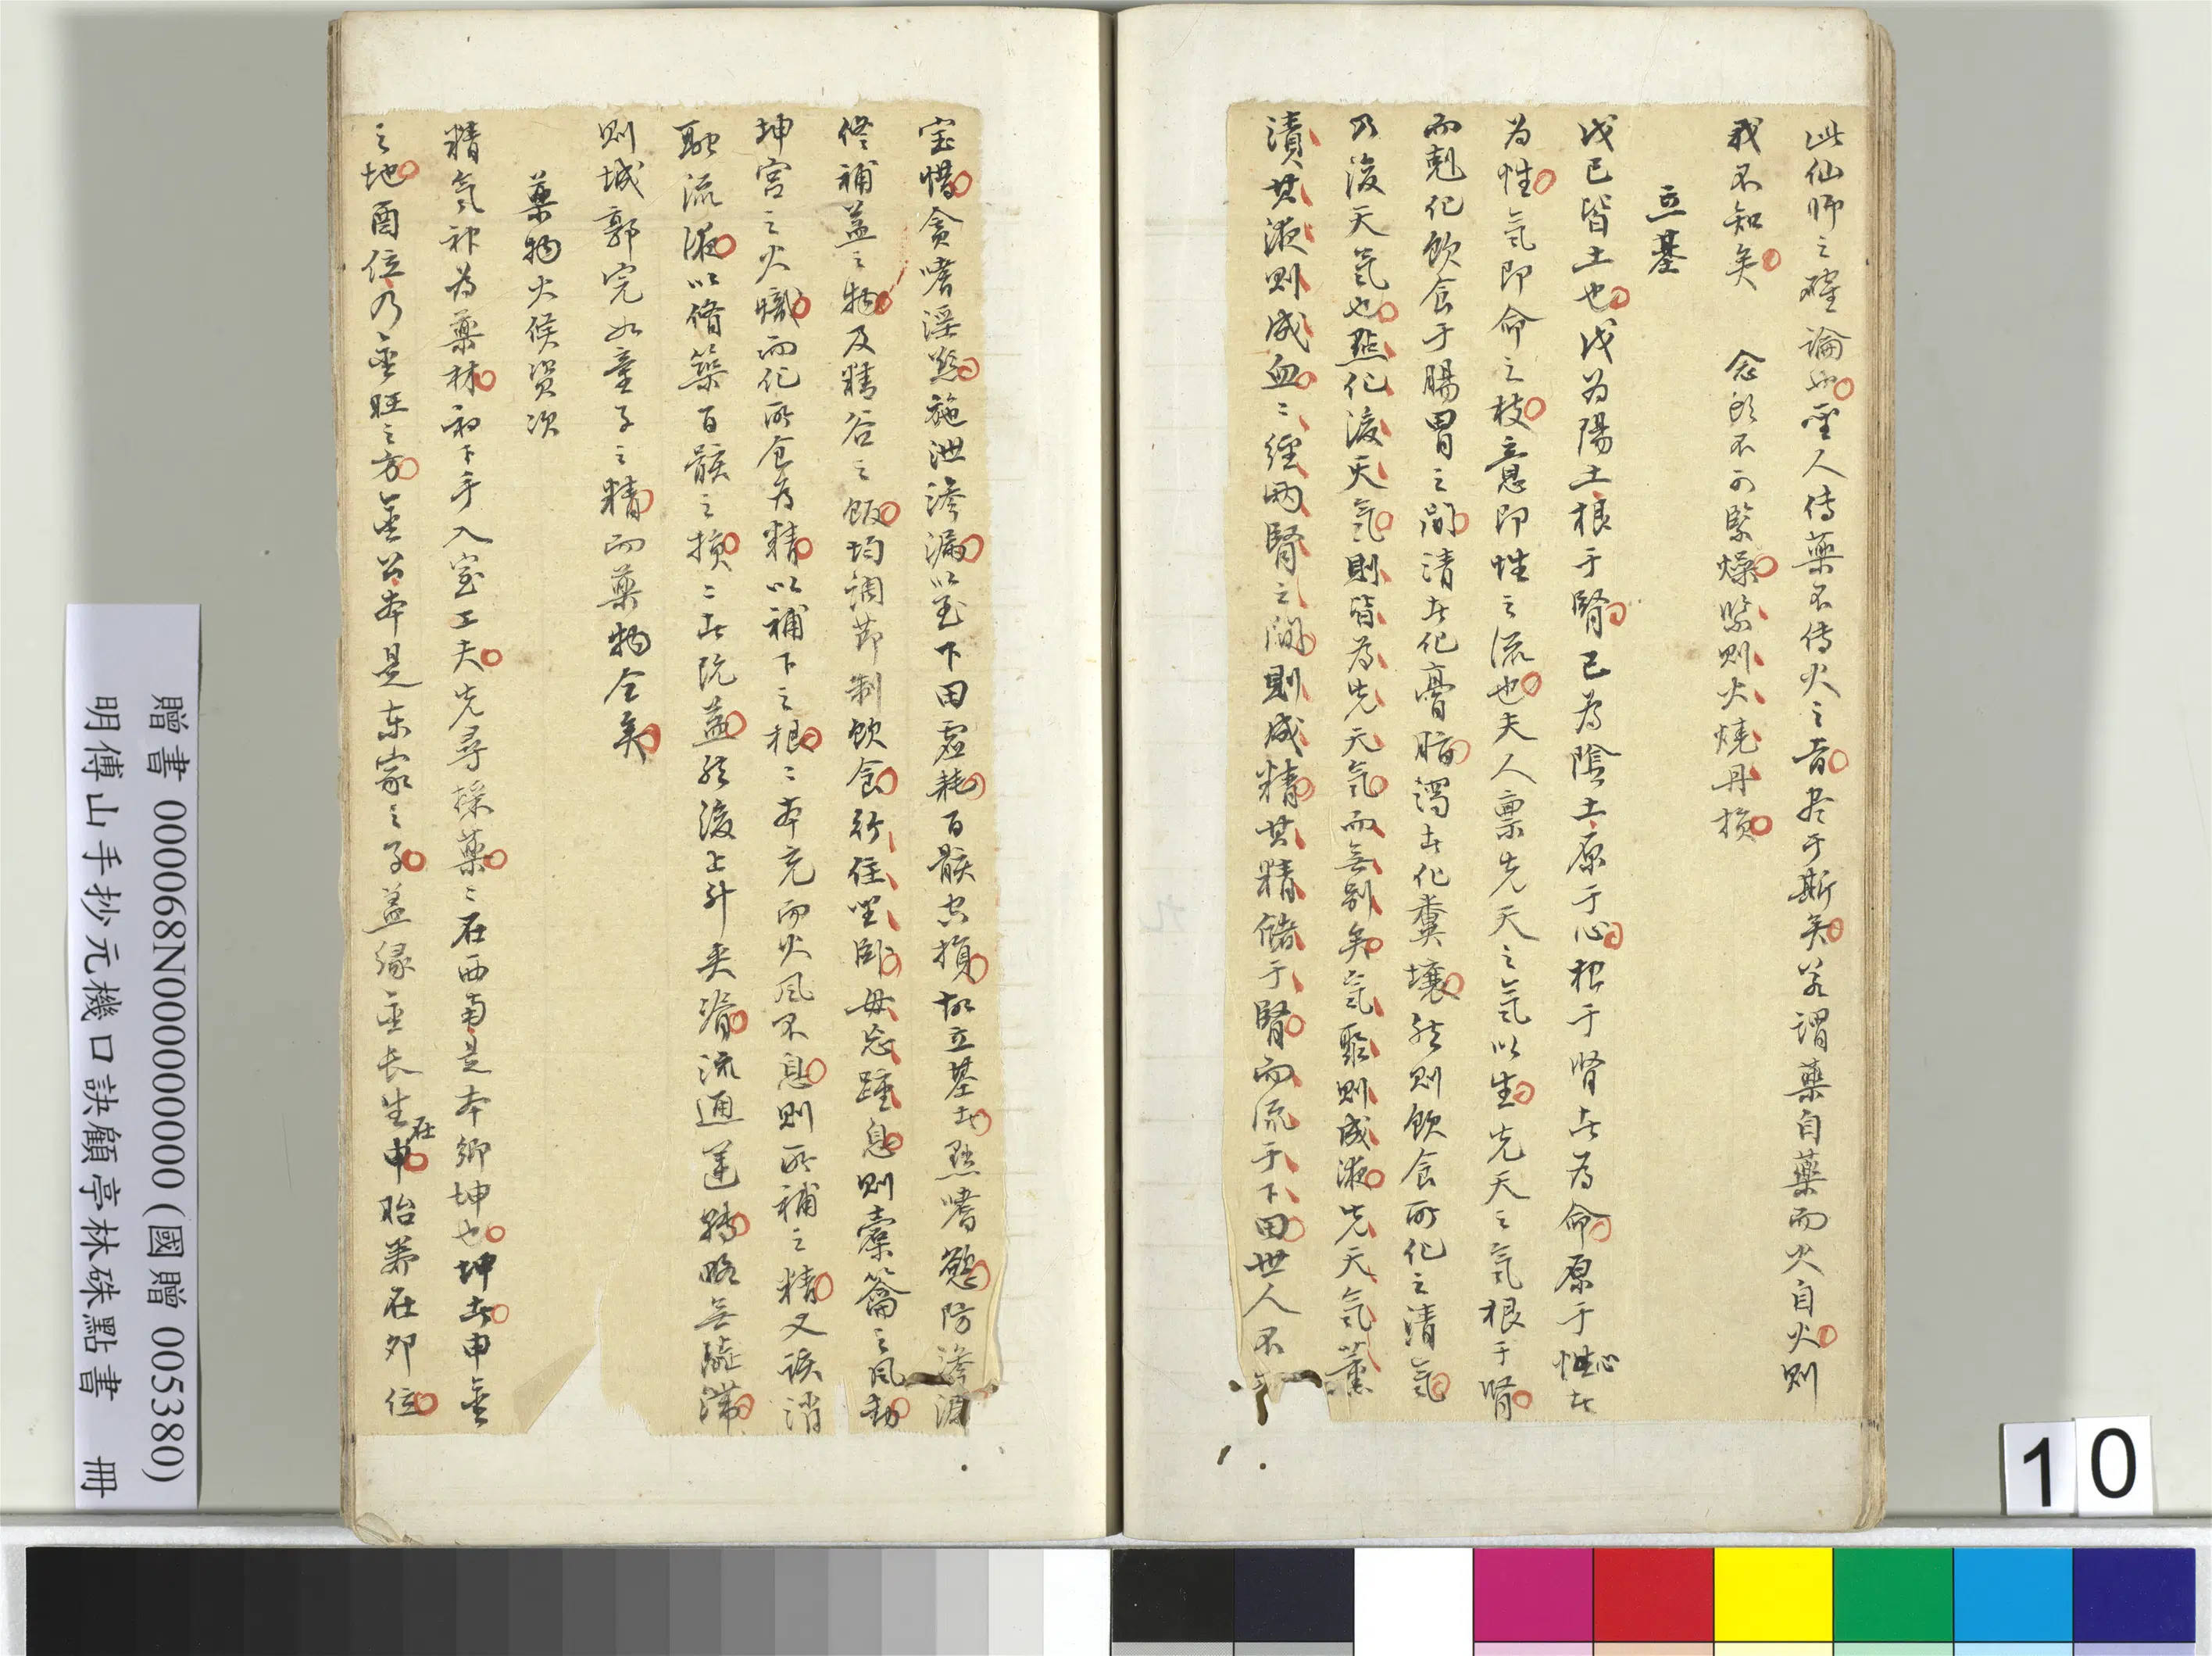 此仙師之確論也聖人傳藥不傳火之旨尽于斯矣若謂藥自藥而火自火則
我不知矣　念頭不可緊燥緊則火燒丹損
立基
戊已皆土也戊为陽土根于腎已為陰土原于心根于腎者為命原于性心者
为性氣即命之枝意即性之流也夫人禀先天之氣以生先天之氣根于腎
而剋化飲食于腸胃之間清者化膏脂濁者化糞壤然則飲食所化之清氣
乃後天氣也點化後天氣則皆為先天氣而無别矣氣聚則成液先天氣薰
漬其液則成血二經两腎之間則成精其精儲于腎而流于下田世人不
宝惜貪嗜淫慾施泄滲漏以至下田虛耗百骸虛損故立基者點嗜慾防滲漏
修補益之物及精谷之飯均調節制飲食行住坐卧毋忘踵息則橐籥之風動
坤宫之火熾而化所食為精以補下之根二本充而火風不息則所補之精又談消
融流液以脩築百骸之損二者既益然後上升夾脊流通運轉略無凝滯
則城郭完如童子之精而藥物全矣
藥物火候資次
精氣神為藥材初下手入室工夫先尋採藥二在西南是本鄉坤也坤者申金
之地酉位乃金旺之方金公本是东家之子蓋緣金長生在申胎养在夘位
贈書 000068N000000000 (國贈 005380)
明傅山手抄元機口訣顧亭林硃點書　冊
10